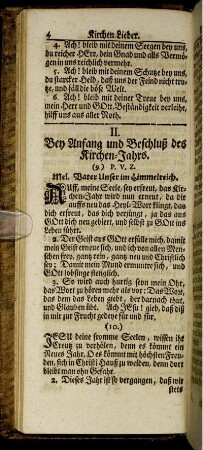 4 Kirchen-Lieder.
4. Ach! bleib mit deinem Seegen bey uns,
du reicher HErr, dein Gnad und alls Vermö-
gen in uns reichlich vermehr.
5. Ach! bleib mit deinem Schutze bey uns,
du starcker Held, daß uns der Feind nicht tru-
tze, und fäll die böse Welt.
6. Ach! bleib mit deiner Treue bey uns,
mein HErr und GOtt, Beständigkeit verleihe,
hilff uns aus aller Noth.
II.
Bey Anfang und Beschluß des
Kirchen-Jahrs.
(9.) P. V. Z.
Mel. Vater Unser im Himmelreich.
AUff, meine Seele, sey erfreut, das Kir-
chen-Jahr wird nun erneut, da dir
auffs neu das Heyls-Wort klingt, das
dich erfreut, das dich verjüngt, ja das aus
GOtt dich neu gebiert, und selbst zu GOtt ins
Leben führt.
2. Der Geist aus GOtt erfülle mich, damit
mein Geist erneue sich, und ich von allen Men-
schen frey, gantz rein, gantz neu und Christlich
sey: Damit mein Mund ermuntre sich, und
GOtt lobsinge stetiglich.
3. So wird auch hurtig seyn mein Ohr,
das Wort zu hören mehr als vor: Das Wort,
das dem das Leben giebt, der darnach thut,
und Glauben übt. Ach JEsu! gieb, daß diß
in mir zur Frucht gedeye für und für.
(10.)
JESU deine fromme Seelen, wissen ihr
Creutz zu verhölen, denn es kömmt ein
Neues Jahr. O es kömmt mit höchsten Freu-
den, sich in Christi Hauß zu weiden, denn dort
bleibt man ohn Gefahr.
2. Dieses Jahr ist so vergangen, daß wir
stets